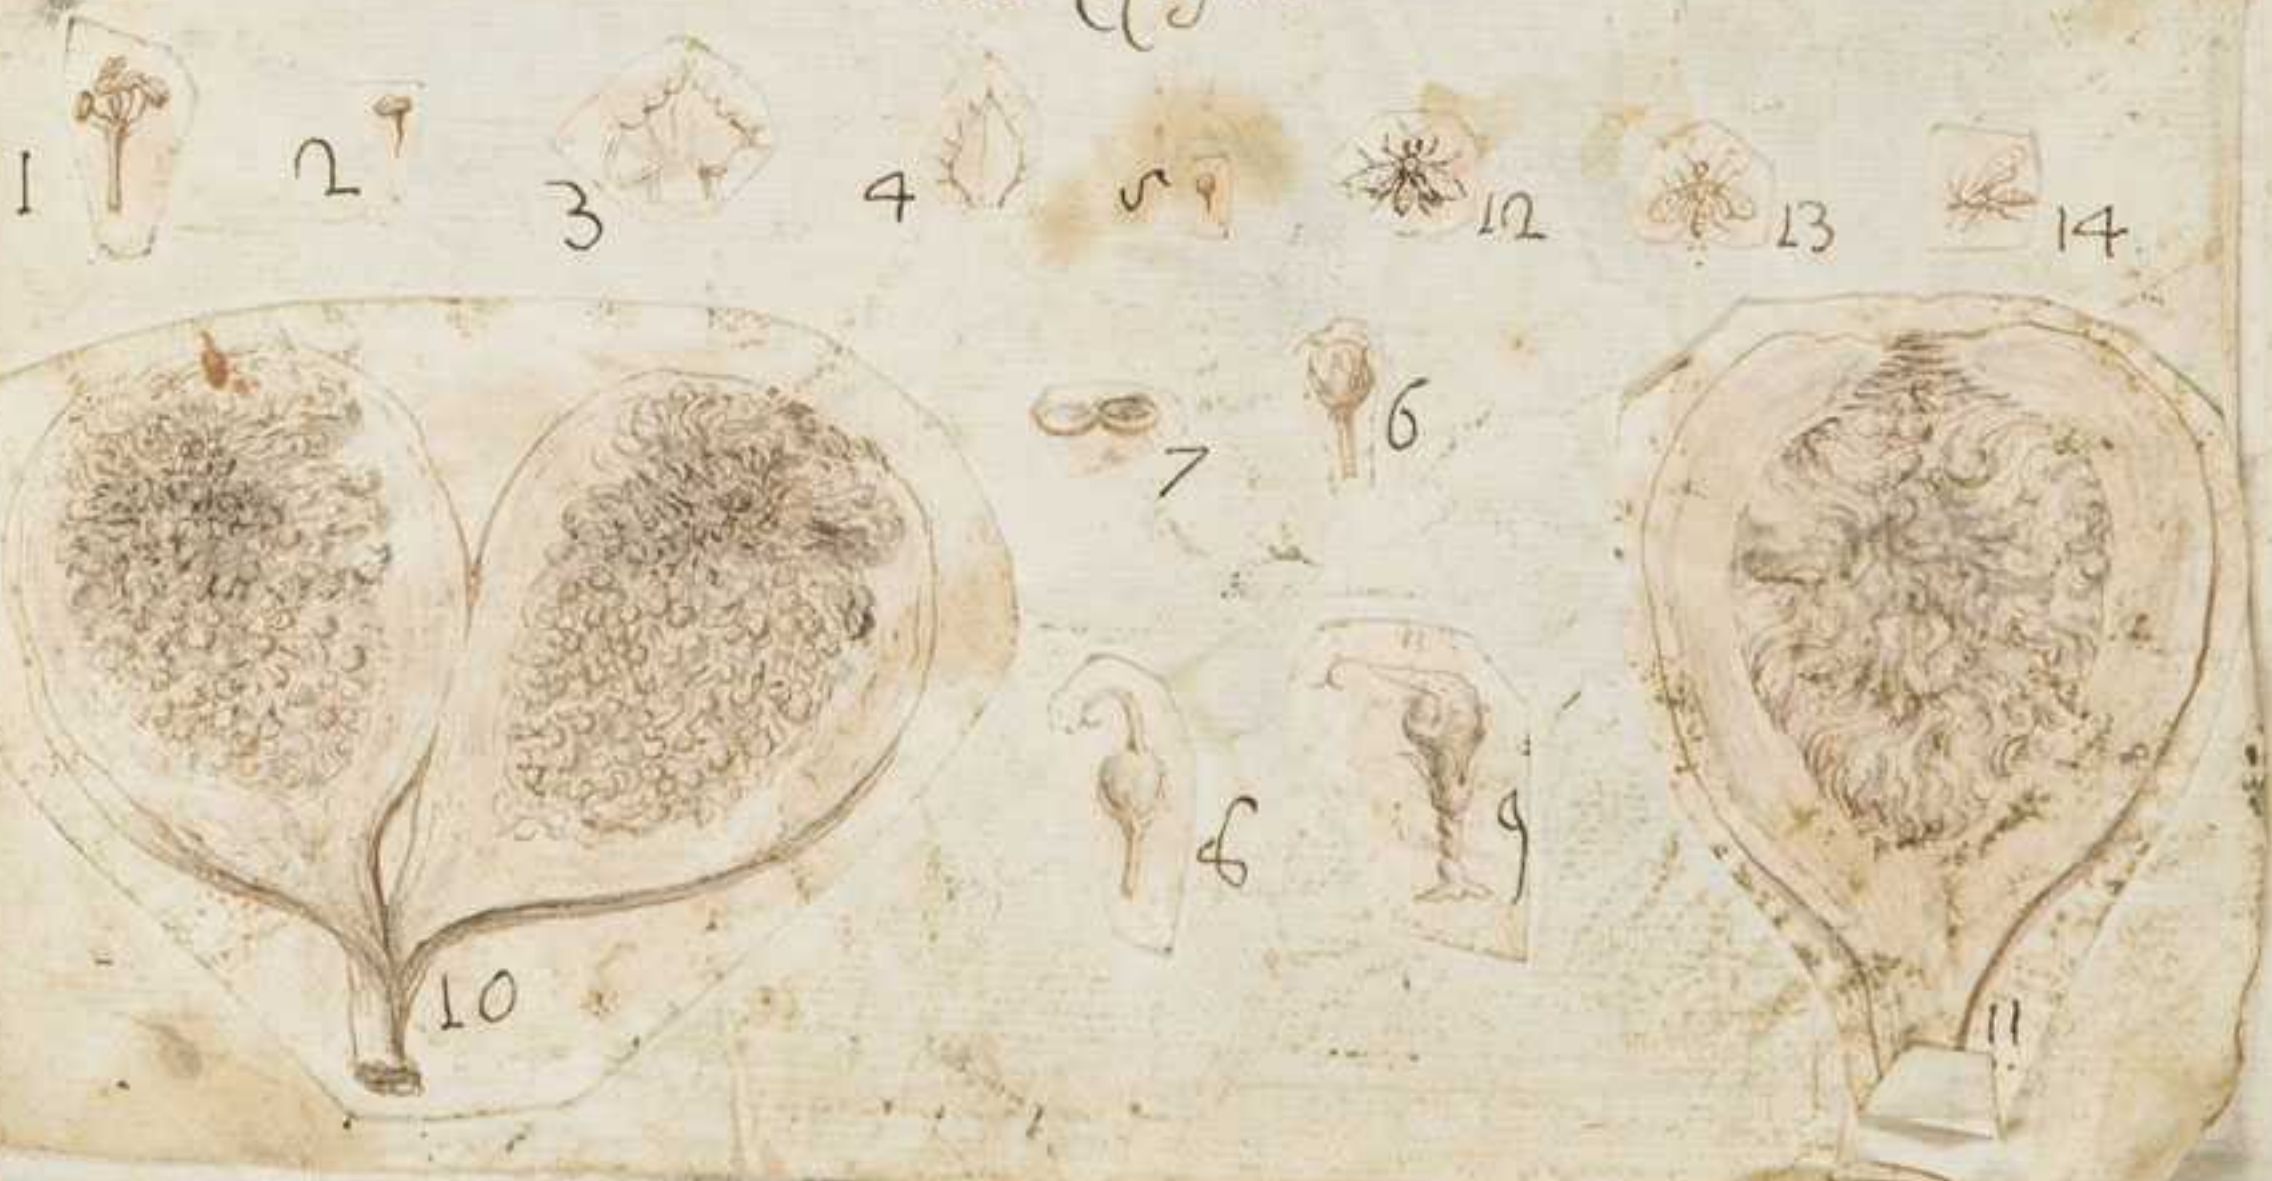 1 2 3 4 5 12 13 14
7 6
8 9
10 11